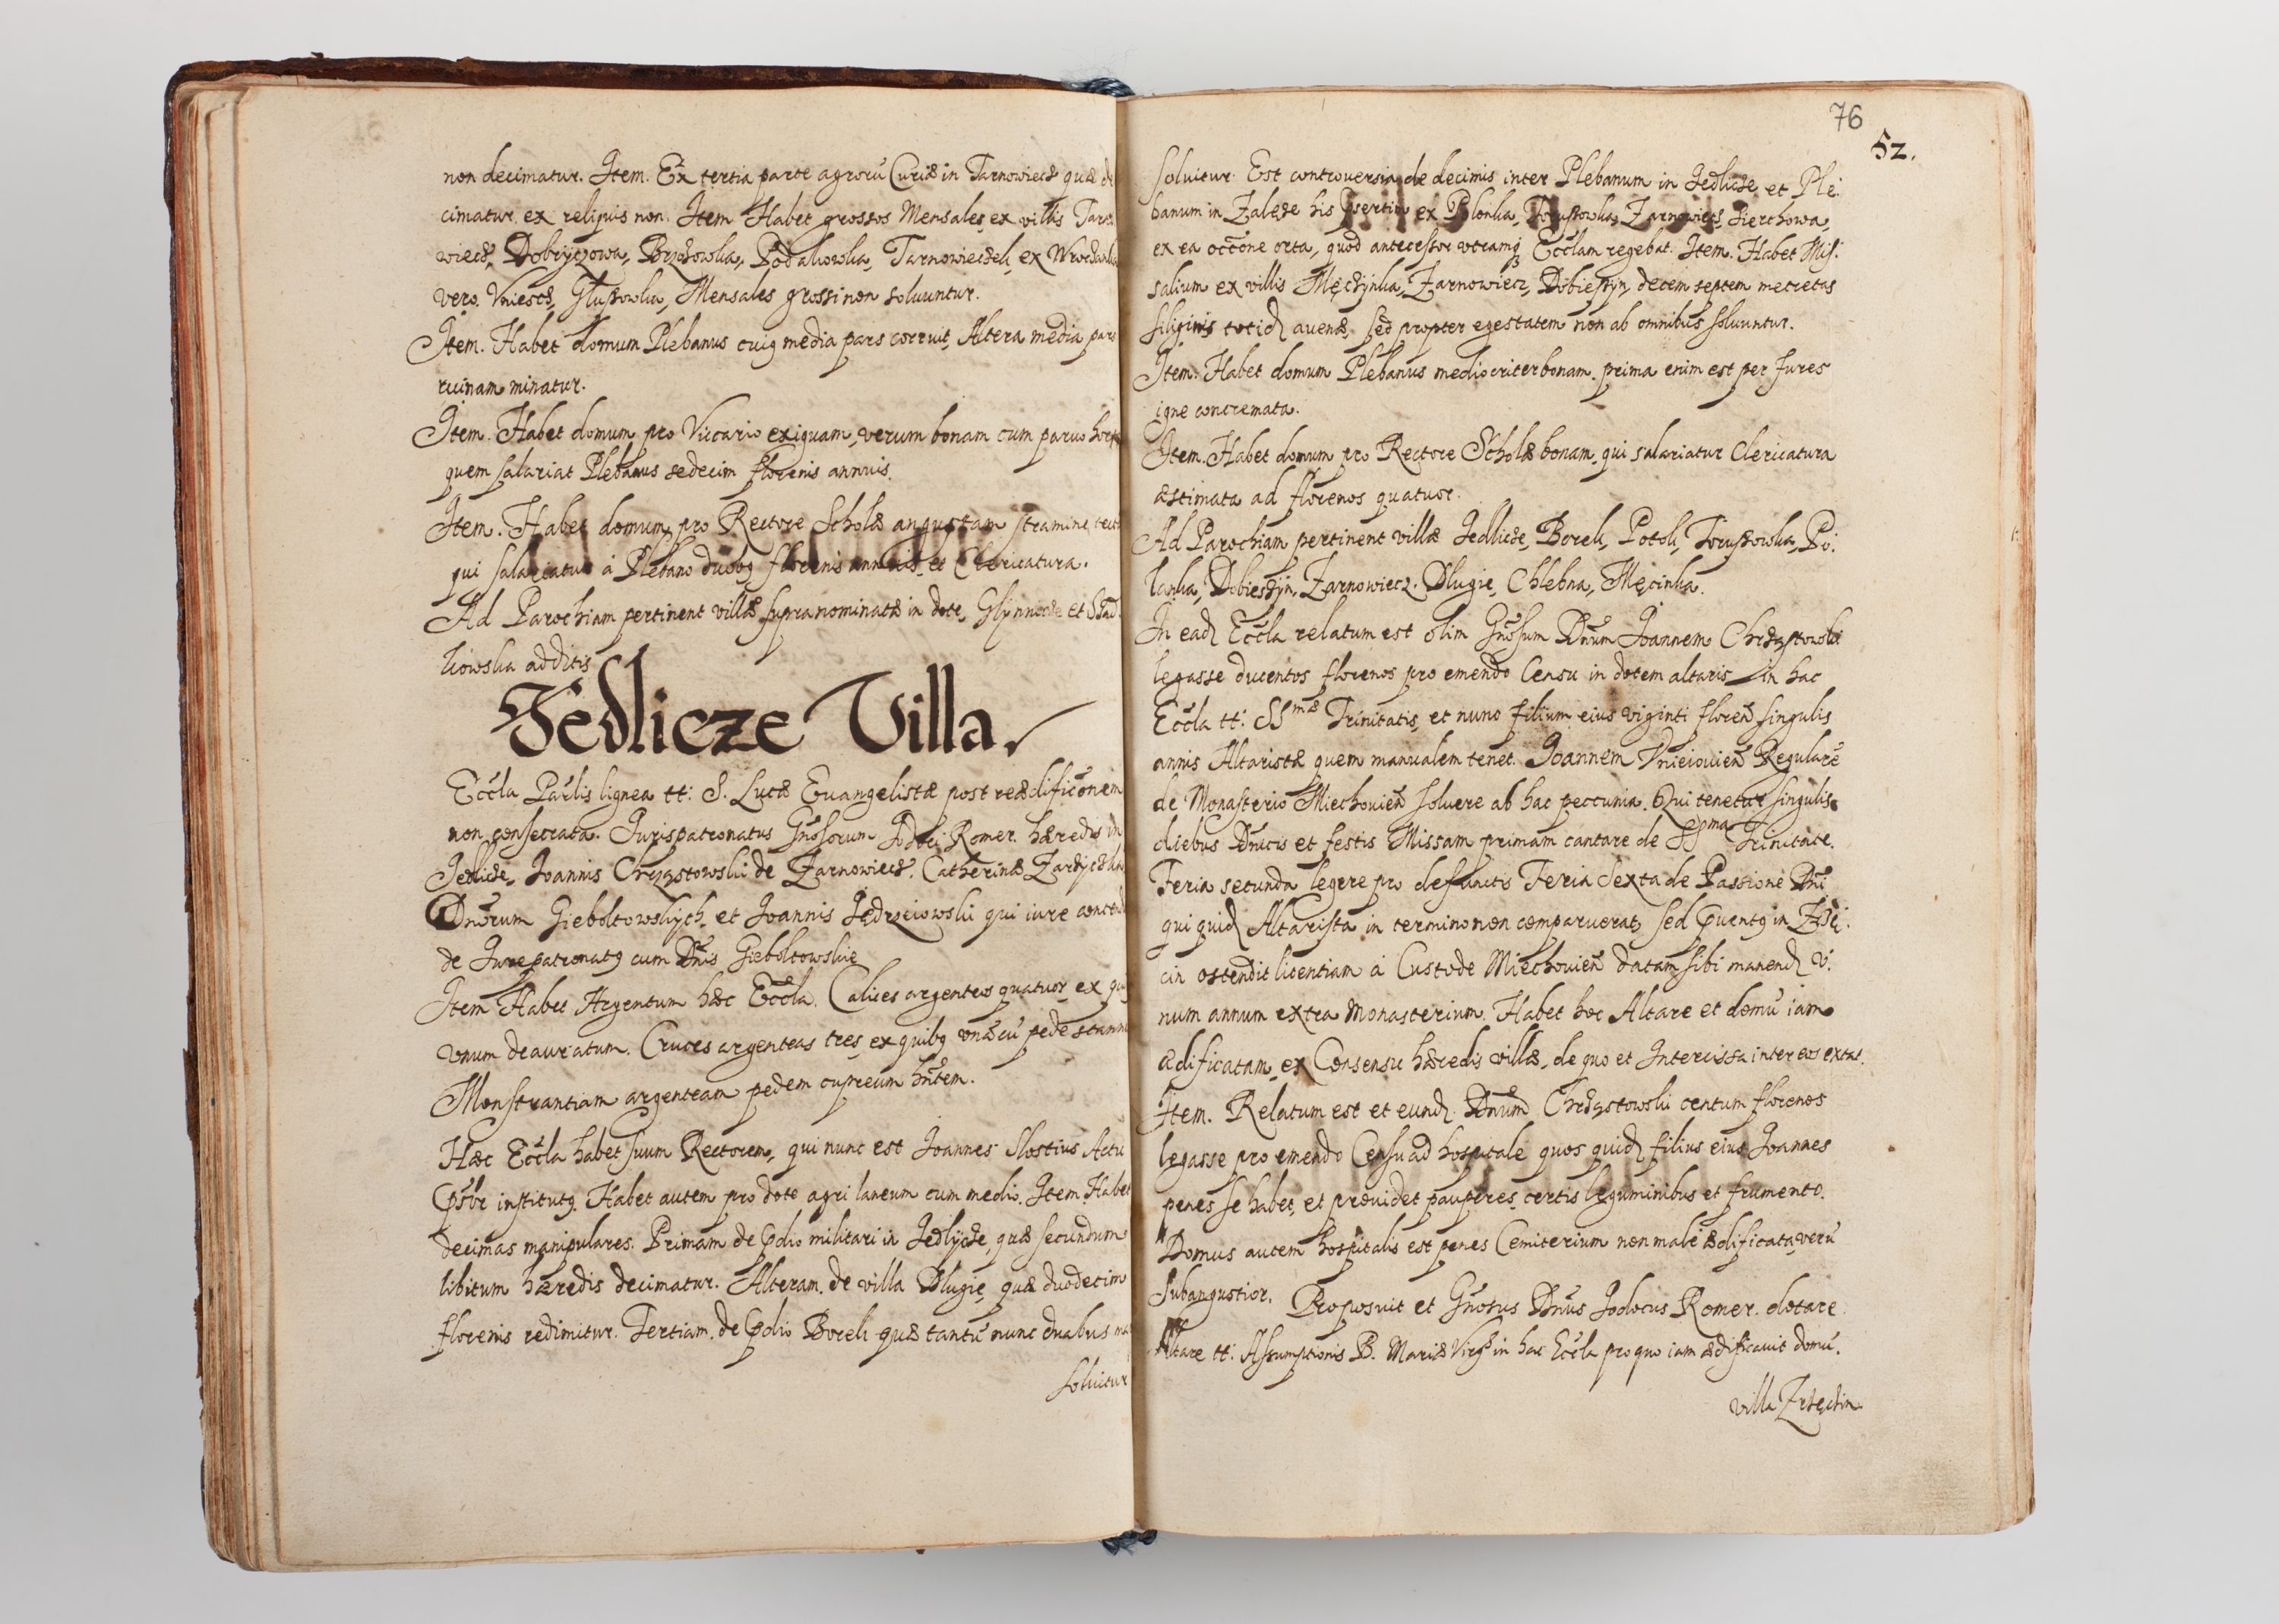 non decimatur. Item. Ex tertia parte agrorũ Curiæ in Tarnowiecz quæ de
cimatur. ex reliquis non. Item Habet grossos Mensales ex villis Tarno
wiecz, Dobrÿczowa, Brzozowka, Podakowka, Tarnowieczek, ex
vero. Vniescz, Glussowka, Mensales grossi non soluuntur.
Item. Habet domum Plebanus cuiꝯ media pars corruit, Altera media pars
ruinam minatur.
Item. Habet domum pro Viccario exiguam, verum bonam cum paruo horto
quem salariat Plebanus sedecim florenis annuis.
Item. Habet domum pro Rectore Scholæ angustam stramine tect
qui salariatur à Plebano duobꝯ florenis annuis et Clericatura.
Ad Parochiam pertinent villæ supranominatæ in dote, Glÿnnicze et
kowska additis
Jedlicze Villa.
Eccla Parlis lignea tt: S. Lucæ Euangelistæ post reædificonem
non consecrata. Jurispatronatus Gnosorum Jodoci Romer. hæredis in
Jedlicze, Joannis Chrząstowski de Zarnowiecz. Catherinæ
Dnorum Gieboltowskÿch, et Joannis Jędrzeiowski qui iure contend
de Jurepatronatꝯ cum Dnis Gieboltowskie
Item Habet Argentum hæc Eccla. Calices argenteos quatuor, ex quibꝯ
vnum deauratum. Cruces argenteas tres, ex quibꝯ vnã cũ pede stanno
Monstrantiam argenteam pedem cupreum hntem.
Hæc Eccla habet suum Rectorem, qui nunc est Joannes Slostius Actu
Psbr institutꝯ. Habet autem pro dote agri laneum cum medio. Item Habet
decimas manipulares. Primam de Pdio militari in Jedlÿcze, quæ secundum
libitum hæredis decimatur. Alteram. de villa Dlugie, quæ duodecim
florenis redimitur. Tertiam. de Pdio Borek quæ tantũ nunc duabus
soluitur
76
52.
soluitur. Est controuersia de decimis inter Plebanum in Jedlicze et Ple:
banum in Zalęze his Psertim ex Polanka, Toruszowka, Zarnowiecz, Pierchowa,
ex ea occone orta, quod antecessor vtramqꝫ Ecclam regebat. Item. Habet Mis:
salium ex villis Męczÿnka, Zarnowiecz, Dobieszÿn, decem septem metretas
siliginis totid auenæ, sed propter egestatem non ab omnibus soluuntur.
Item. Habet domum Plebanus mediocriter bonam. prima enim est per fures
igne concremata.
Item. Habet domum pro Rectore Scholæ bonam, qui salariatur Clericatura
æstimata ad florenos quatuor.
Ad Parochiam pertinent villæ Jedlicze, Borek, Potok, Toruszowka, Po:
lanka, Dobieszÿn, Zarnowiecz. Dlugie, Chlebna, Męcinka.
In ead Eccla relatum est olim Gnosum Dnum Joannem Chrząstowski
legasse ducentos florenos pro emendo Censu in dotem altaris in hac
Eccla tt: SSmæ Trinitatis, et nunc filium eius viginti floren singulis
annis Altaristæ quem manualem tenet. Joannem Vnieiouien Regularẽ
de Monasterio Miechouien soluere ab hac peccunia. Qui tenetur singulis
diebus Dnicis et festis Missam primam cantare de SSma Trinitate.
Feria secunda legere pro defunctis Feria Sexta de Passione Dni
qui quid Altarista in termino non comparuerat, sed Puentꝯ in Zrzę:
cin ostendit licentiam à Custode Miechouien datam sibi manend v:
num annum extra Monasterium. Habet hoc Altare et domũ iam
ædificatam, ex Consensu hæredis villæ, de quo et Intercissa inter eos extat.
Item. Relatum est et eund. Dnum Chrząstowski centum florenos
legasse pro emendo Censu ad hospitale quos quid filius eius Joannes
penes se habet, et prouidet pauperes certis leguminibus et frumento.
Domus autem hospitalis est penes Cemiterium non male ædificata, verũ
subangustior. Proposuit et Gnosus Dnus Jodocus Romer. dotare
Altare tt: Assumptionis B. Mariæ Virgĩs in hac Eccla pro quo iam ædificauit domũ.
villa Zrzęchin